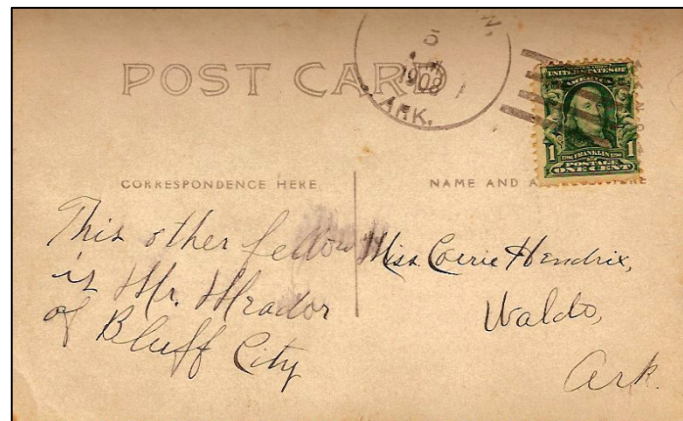 5
1908
ARK.
POST CARD
UNITED STATES OF
AMERICA
1 FRANKLIN 1
POSTAGE
ONE CENT
CORRESPONDENCE HERE
NAME AND
This other fellow
is Mr. Meador
of Bluff City
Miss Corrie Hendrix,
Waldo,
Ark.